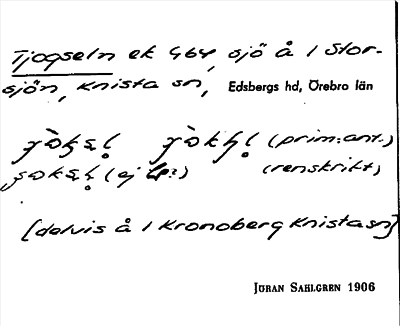 Tjogseln ek 464, sjö å 1 Stor-
sjön, Knista sn, Edsbergs hd, Örebro län
(prim.ant.)
(ej l.p.?) (renskrift)
[delvis å 1 Kronoberg Knista sn]
JÖRAN SAHLGREN 1906